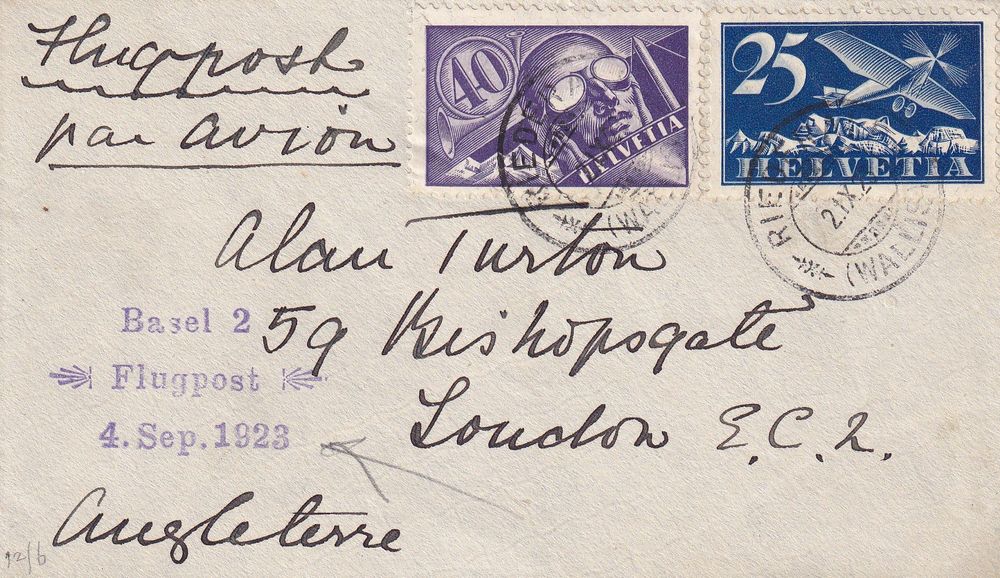 Flugpost
par avion
40
HELVETIA
25
HELVETIA
RIED
2.IX.2
(WALLIS)
Alan Turton
59 Bishopsgate
London E.C.2.
Angleterre
Basel 2
Flugpost
4. Sep. 1923
12/6